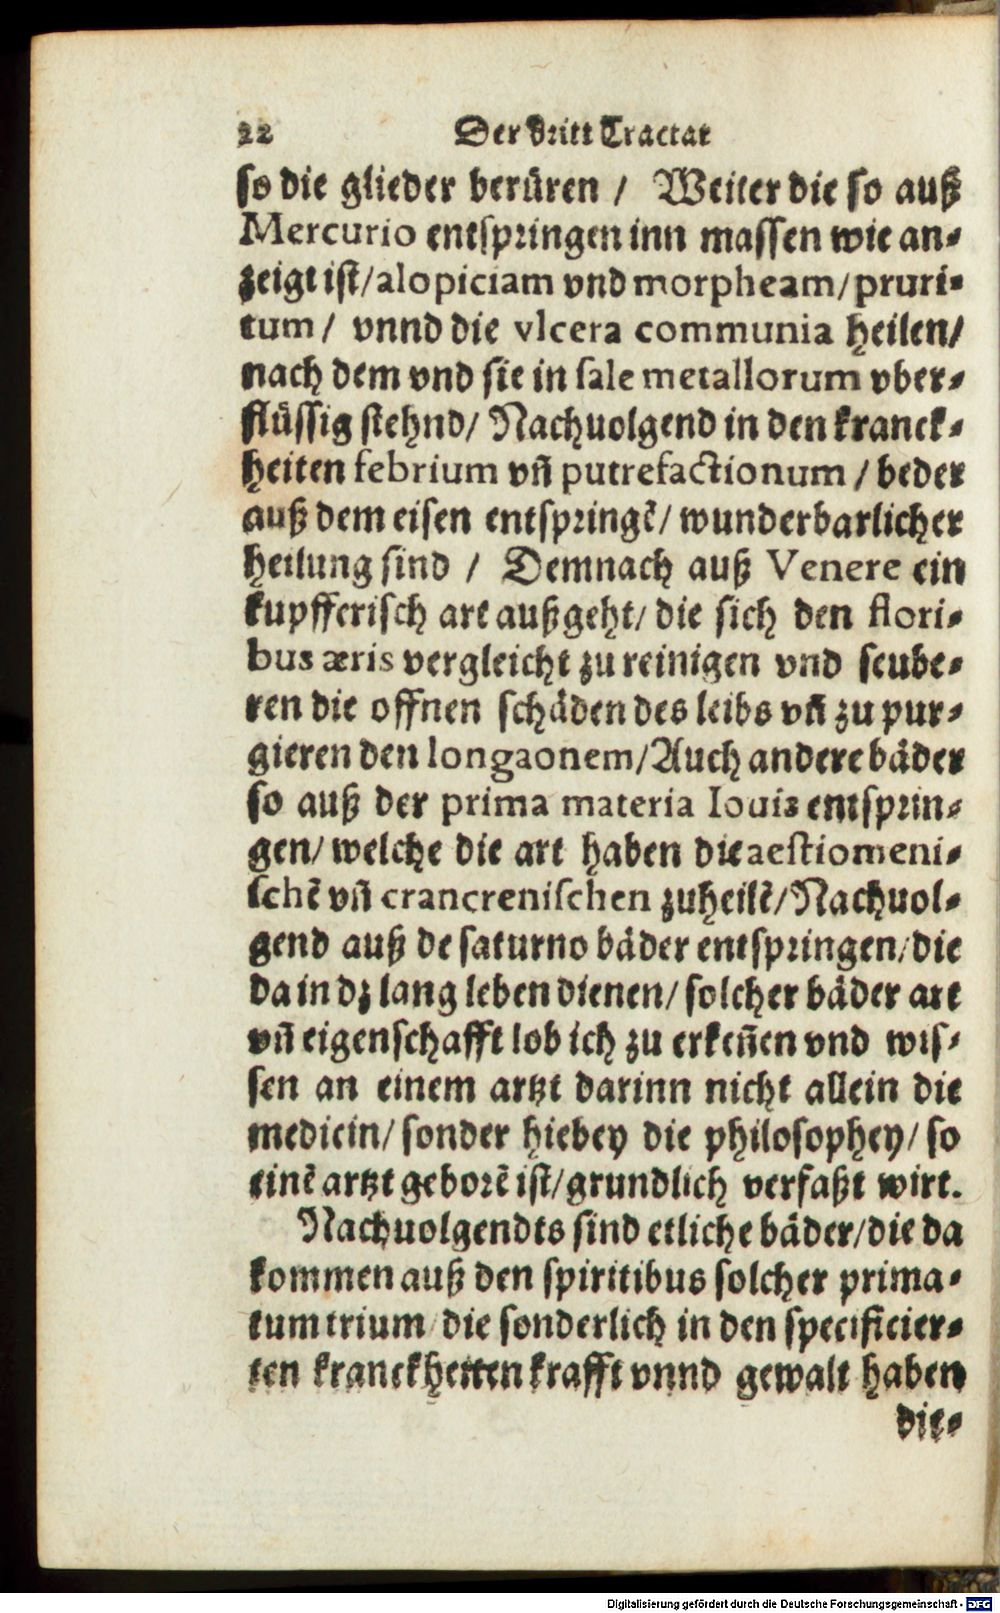 22 Der dritt Tractat
so die glieder berüren / Weiter die so auß
Mercurio entspringen inn massen wie an-
zeigt ist/alopiciam vnd morpheam/pruri-
tum / vnnd die vlcera communia heilen/
nach dem vnd sie in sale metallorum vber-
flüssig stehnd/ Nachuolgend in den kranck-
heiten febrium vñ putrefactionum / beder
auß dem eisen entspringẽ/ wunderbarlicher
heilung sind / Demnach auß Venere ein
kupfferisch art außgeht/ die sich den flori-
bus æris vergleicht zu reinigen vnd seube-
ren die offnen schäden des leibs vñ zu pur-
gieren den longaonem/Auch andere bäder
so auß der prima materia Iouis entsprin-
gen/ welche die art haben die aestiomeni-
schẽ vñ crancrenischen zuheilẽ/Nachuol-
gend auß de saturno bäder entspringen/die
da in dz lang leben dienen/ solcher bäder art
vñ eigenschafft lob ich zu erkeñen vnd wis-
sen an einem artzt darinn nicht allein die
medicin/ sonder hiebey die philosophey/ so
einẽ artzt geborẽ ist/grundlich verfaßt wirt.
Nachuolgendts sind etliche bäder/die da
kommen auß den spiritibus solcher prima-
tum trium/die sonderlich in den specificier-
ten kranckheiten krafft vnnd gewalt haben
die-
Digitalisierung gefördert durch die Deutsche Forschungsgemeinschaft - DFG